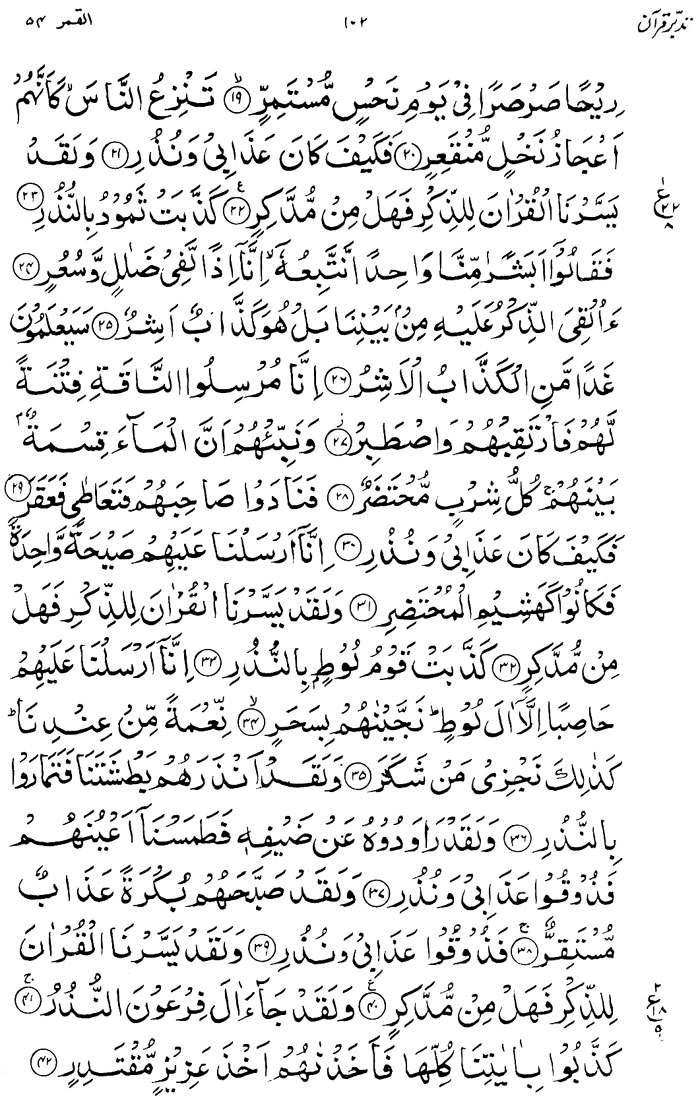 تدبر قرآن ۱۰۲ القمر ۵۴
رِيْحًا صَرْصَرًا فِيْ يَوْمِ نَحْسٍ مُّسْتَمِرٍّ ﴿۱۹﴾ۙ تَنْزِعُ النَّاسَ ۙ كَاَنَّهُمْ
اَعْجَازُ نَخْلٍ مُّنْقَعِرٍ ﴿۲۰﴾ فَكَيْفَ كَانَ عَذَابِيْ وَنُذُرِ ﴿۲۱﴾ وَلَقَدْ
يَسَّرْنَا الْقُرْاٰنَ لِلذِّكْرِ فَهَلْ مِنْ مُّدَّكِرٍ ﴿۲۲﴾ۧ كَذَّبَتْ ثَمُوْدُ بِالنُّذُرِ ﴿۲۳﴾
فَقَالُوْٓا اَبَشَرًا مِّنَّا وَاحِدًا نَّتَّبِعُهٗٓ ۙ اِنَّآ اِذًا لَّفِيْ ضَلٰلٍ وَّسُعُرٍ ﴿۲۴﴾
ءَاُلْقِيَ الذِّكْرُ عَلَيْهِ مِنْۢ بَيْنِنَا بَلْ هُوَ كَذَّابٌ اَشِرٌ ﴿۲۵﴾ سَيَعْلَمُوْنَ
غَدًا مَّنِ الْكَذَّابُ الْاَشِرُ ﴿۲۶﴾ اِنَّا مُرْسِلُوا النَّاقَةِ فِتْنَةً
لَّهُمْ فَارْتَقِبْهُمْ وَاصْطَبِرْ ﴿۲۷﴾ۡ وَنَبِّئْهُمْ اَنَّ الْمَآءَ قِسْمَةٌۢ
بَيْنَهُمْ ۚ كُلُّ شِرْبٍ مُّحْتَضَرٌ ﴿۲۸﴾ فَنَادَوْا صَاحِبَهُمْ فَتَعَاطٰى فَعَقَرَ ﴿۲۹﴾
فَكَيْفَ كَانَ عَذَابِيْ وَنُذُرِ ﴿۳۰﴾ اِنَّآ اَرْسَلْنَا عَلَيْهِمْ صَيْحَةً وَّاحِدَةً
فَكَانُوْا كَهَشِيْمِ الْمُحْتَظِرِ ﴿۳۱﴾ وَلَقَدْ يَسَّرْنَا الْقُرْاٰنَ لِلذِّكْرِ فَهَلْ
مِنْ مُّدَّكِرٍ ﴿۳۲﴾ كَذَّبَتْ قَوْمُ لُوْطٍۭ بِالنُّذُرِ ﴿۳۳﴾ اِنَّآ اَرْسَلْنَا عَلَيْهِمْ
حَاصِبًا اِلَّآ اٰلَ لُوْطٍ ؕ نَجَّيْنٰهُمْ بِسَحَرٍ ﴿۳۴﴾ۙ نِّعْمَةً مِّنْ عِنْدِنَا ؕ
كَذٰلِكَ نَجْزِيْ مَنْ شَكَرَ ﴿۳۵﴾ وَلَقَدْ اَنْذَرَهُمْ بَطْشَتَنَا فَتَمَارَوْا
بِالنُّذُرِ ﴿۳۶﴾ وَلَقَدْ رَاوَدُوْهُ عَنْ ضَيْفِهٖ فَطَمَسْنَآ اَعْيُنَهُمْ
فَذُوْقُوْا عَذَابِيْ وَنُذُرِ ﴿۳۷﴾ وَلَقَدْ صَبَّحَهُمْ بُكْرَةً عَذَابٌ
مُّسْتَقِرٌّ ﴿۳۸﴾ۚ فَذُوْقُوْا عَذَابِيْ وَنُذُرِ ﴿۳۹﴾ وَلَقَدْ يَسَّرْنَا الْقُرْاٰنَ
لِلذِّكْرِ فَهَلْ مِنْ مُّدَّكِرٍ ﴿۴۰﴾ۧ وَلَقَدْ جَآءَ اٰلَ فِرْعَوْنَ النُّذُرُ ﴿۴۱﴾ۚ
كَذَّبُوْا بِاٰيٰتِنَا كُلِّهَا فَاَخَذْنٰهُمْ اَخْذَ عَزِيْزٍ مُّقْتَدِرٍ ﴿۴۲﴾